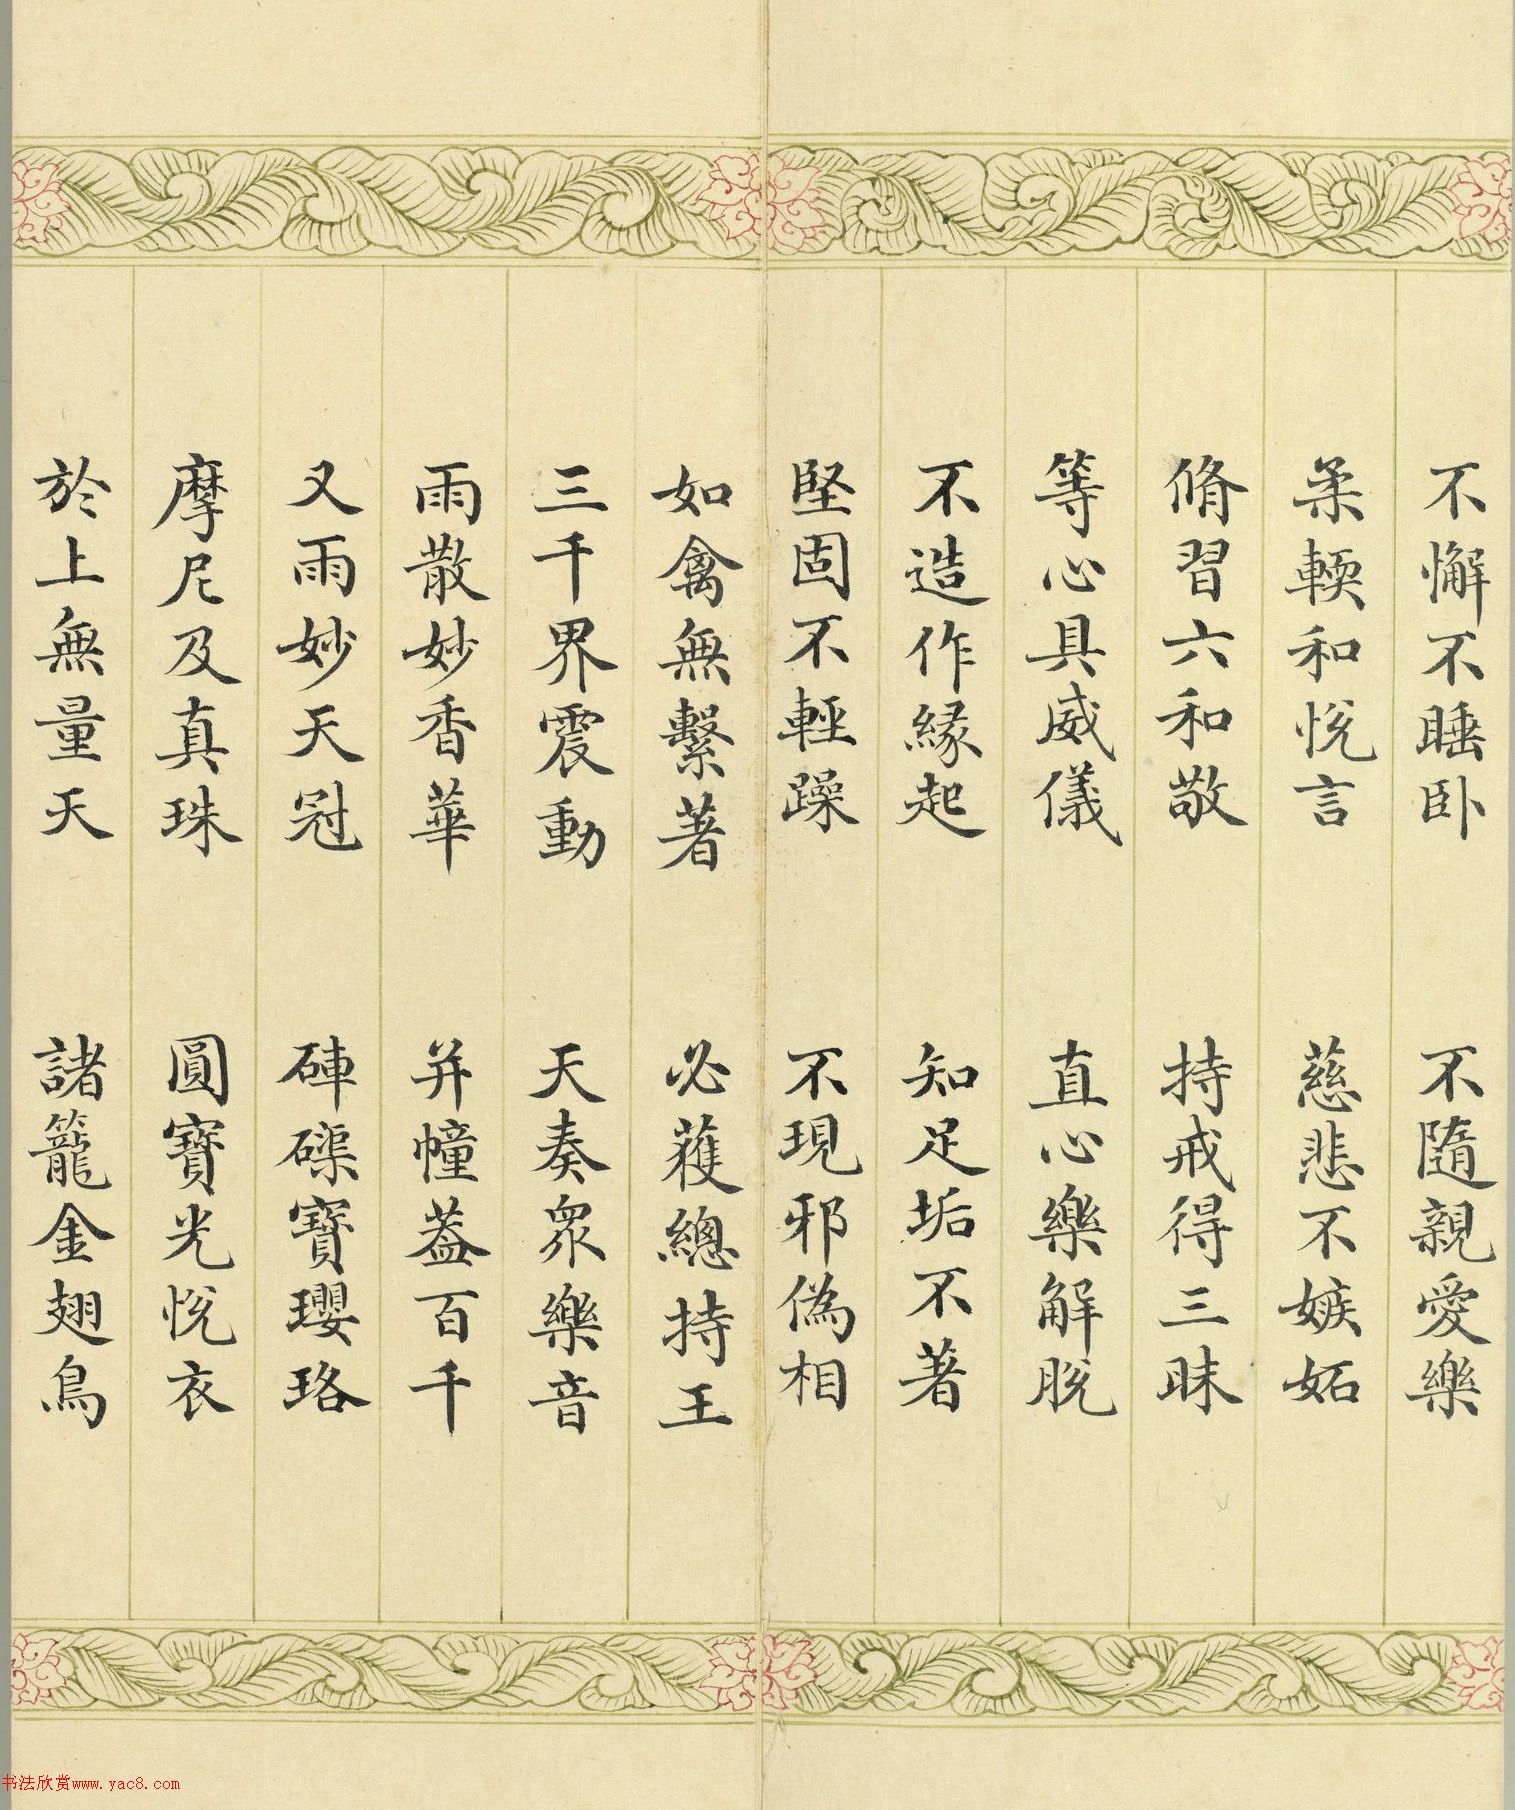 不懈不睡卧 不隨親愛樂
柔輭和悅言 慈悲不嫉妬
脩習六和敬 持戒得三昧
等心具威儀 直心樂解脫
不造作緣起 知足垢不著
堅固不輕躁 不現邪偽相
如禽無繫著 必獲總持王
三千界震動 天奏眾樂音
雨散妙香華 并幢蓋百千
又雨妙天冠 硨磲寶瓔珞
摩尼及真珠 圓寶光悅衣
於上無量天 諸籠金翅鳥
书法欣赏www.yac8.com